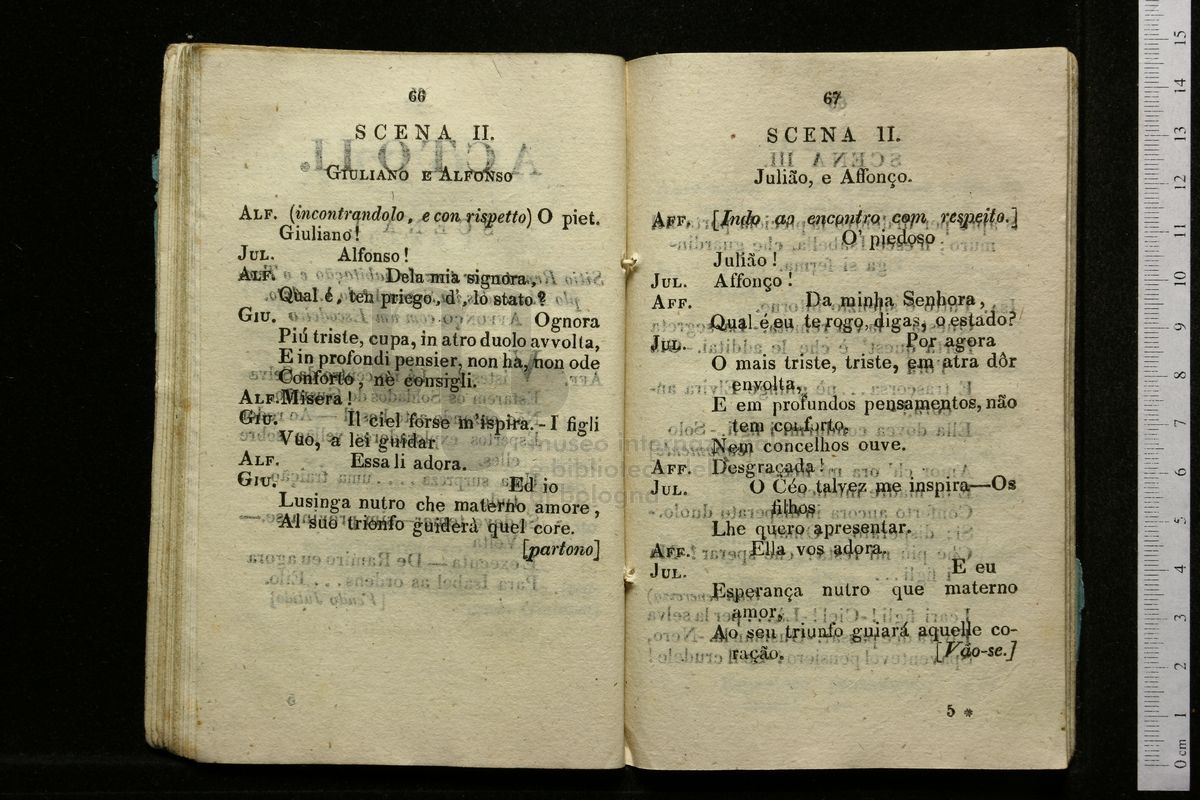 66
SCENA II.
GIULIANO E ALFONSO
ALF. (incontrandolo, e con rispetto) O piet.
Giuliano!
JUL. Alfonso!
ALF. Dela mia signora,
Qual é, ten priego, d', lo stato?
GIU. Ognora
Piú triste, cupa, in atro duolo avvolta,
E in profondi pensier, non ha, non ode
Conforto, nè consigli.
ALF. Misera!
GIU. Il ciel forse m'ispira. - I figli
Vuo, a lei guidar.
ALF. Essa li adora.
GIU. Ed io
Lusinga nutro che materno amore,
Al suo trionfo guiderà quel core.
[partono]
67
SCENA II.
Julião, e Affonço.
AFF. [Indo ao encontro com respeito.]
O' piedoso
Julião!
JUL. Affonço!
AFF. Da minha Senhora,
Qual é eu te rogo, digas, o estado?
JUL. Por agora
O mais triste, triste, em atra dôr
envolta,
E em profundos pensamentos, não
tem conforto,
Nem concelhos ouve.
AFF. Desgraçada!
JUL. O Céo talvez me inspira—Os
filhos
Lhe quero apresentar.
AFF. Ella vos adora.
JUL. E eu
Esperança nutro que materno
amor,
Ao seu triunfo guiará aquelle co-
ração. [Vão-se.]
5 *
museo internaz
e biblio
bologna
0 cm 1 2 3 4 5 6 7 8 9 10 11 12 13 14 15